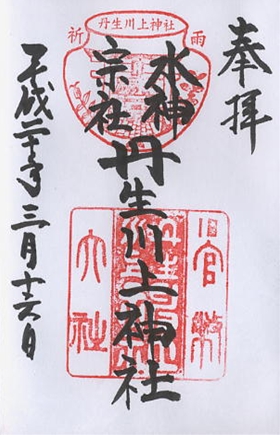 奉拝
丹生川上神社
祈雨
水神
宗社
丹生川上神社
旧官幣
大社
平成二十年三月十六日